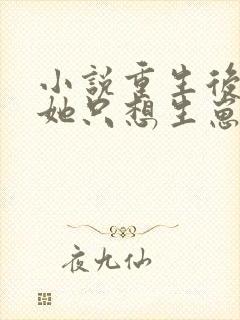 小說重生後
她只想生崽
夜九仙